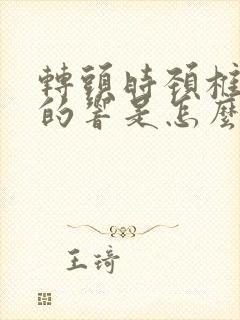 轉頭時頸椎
的響是怎麼
王琦